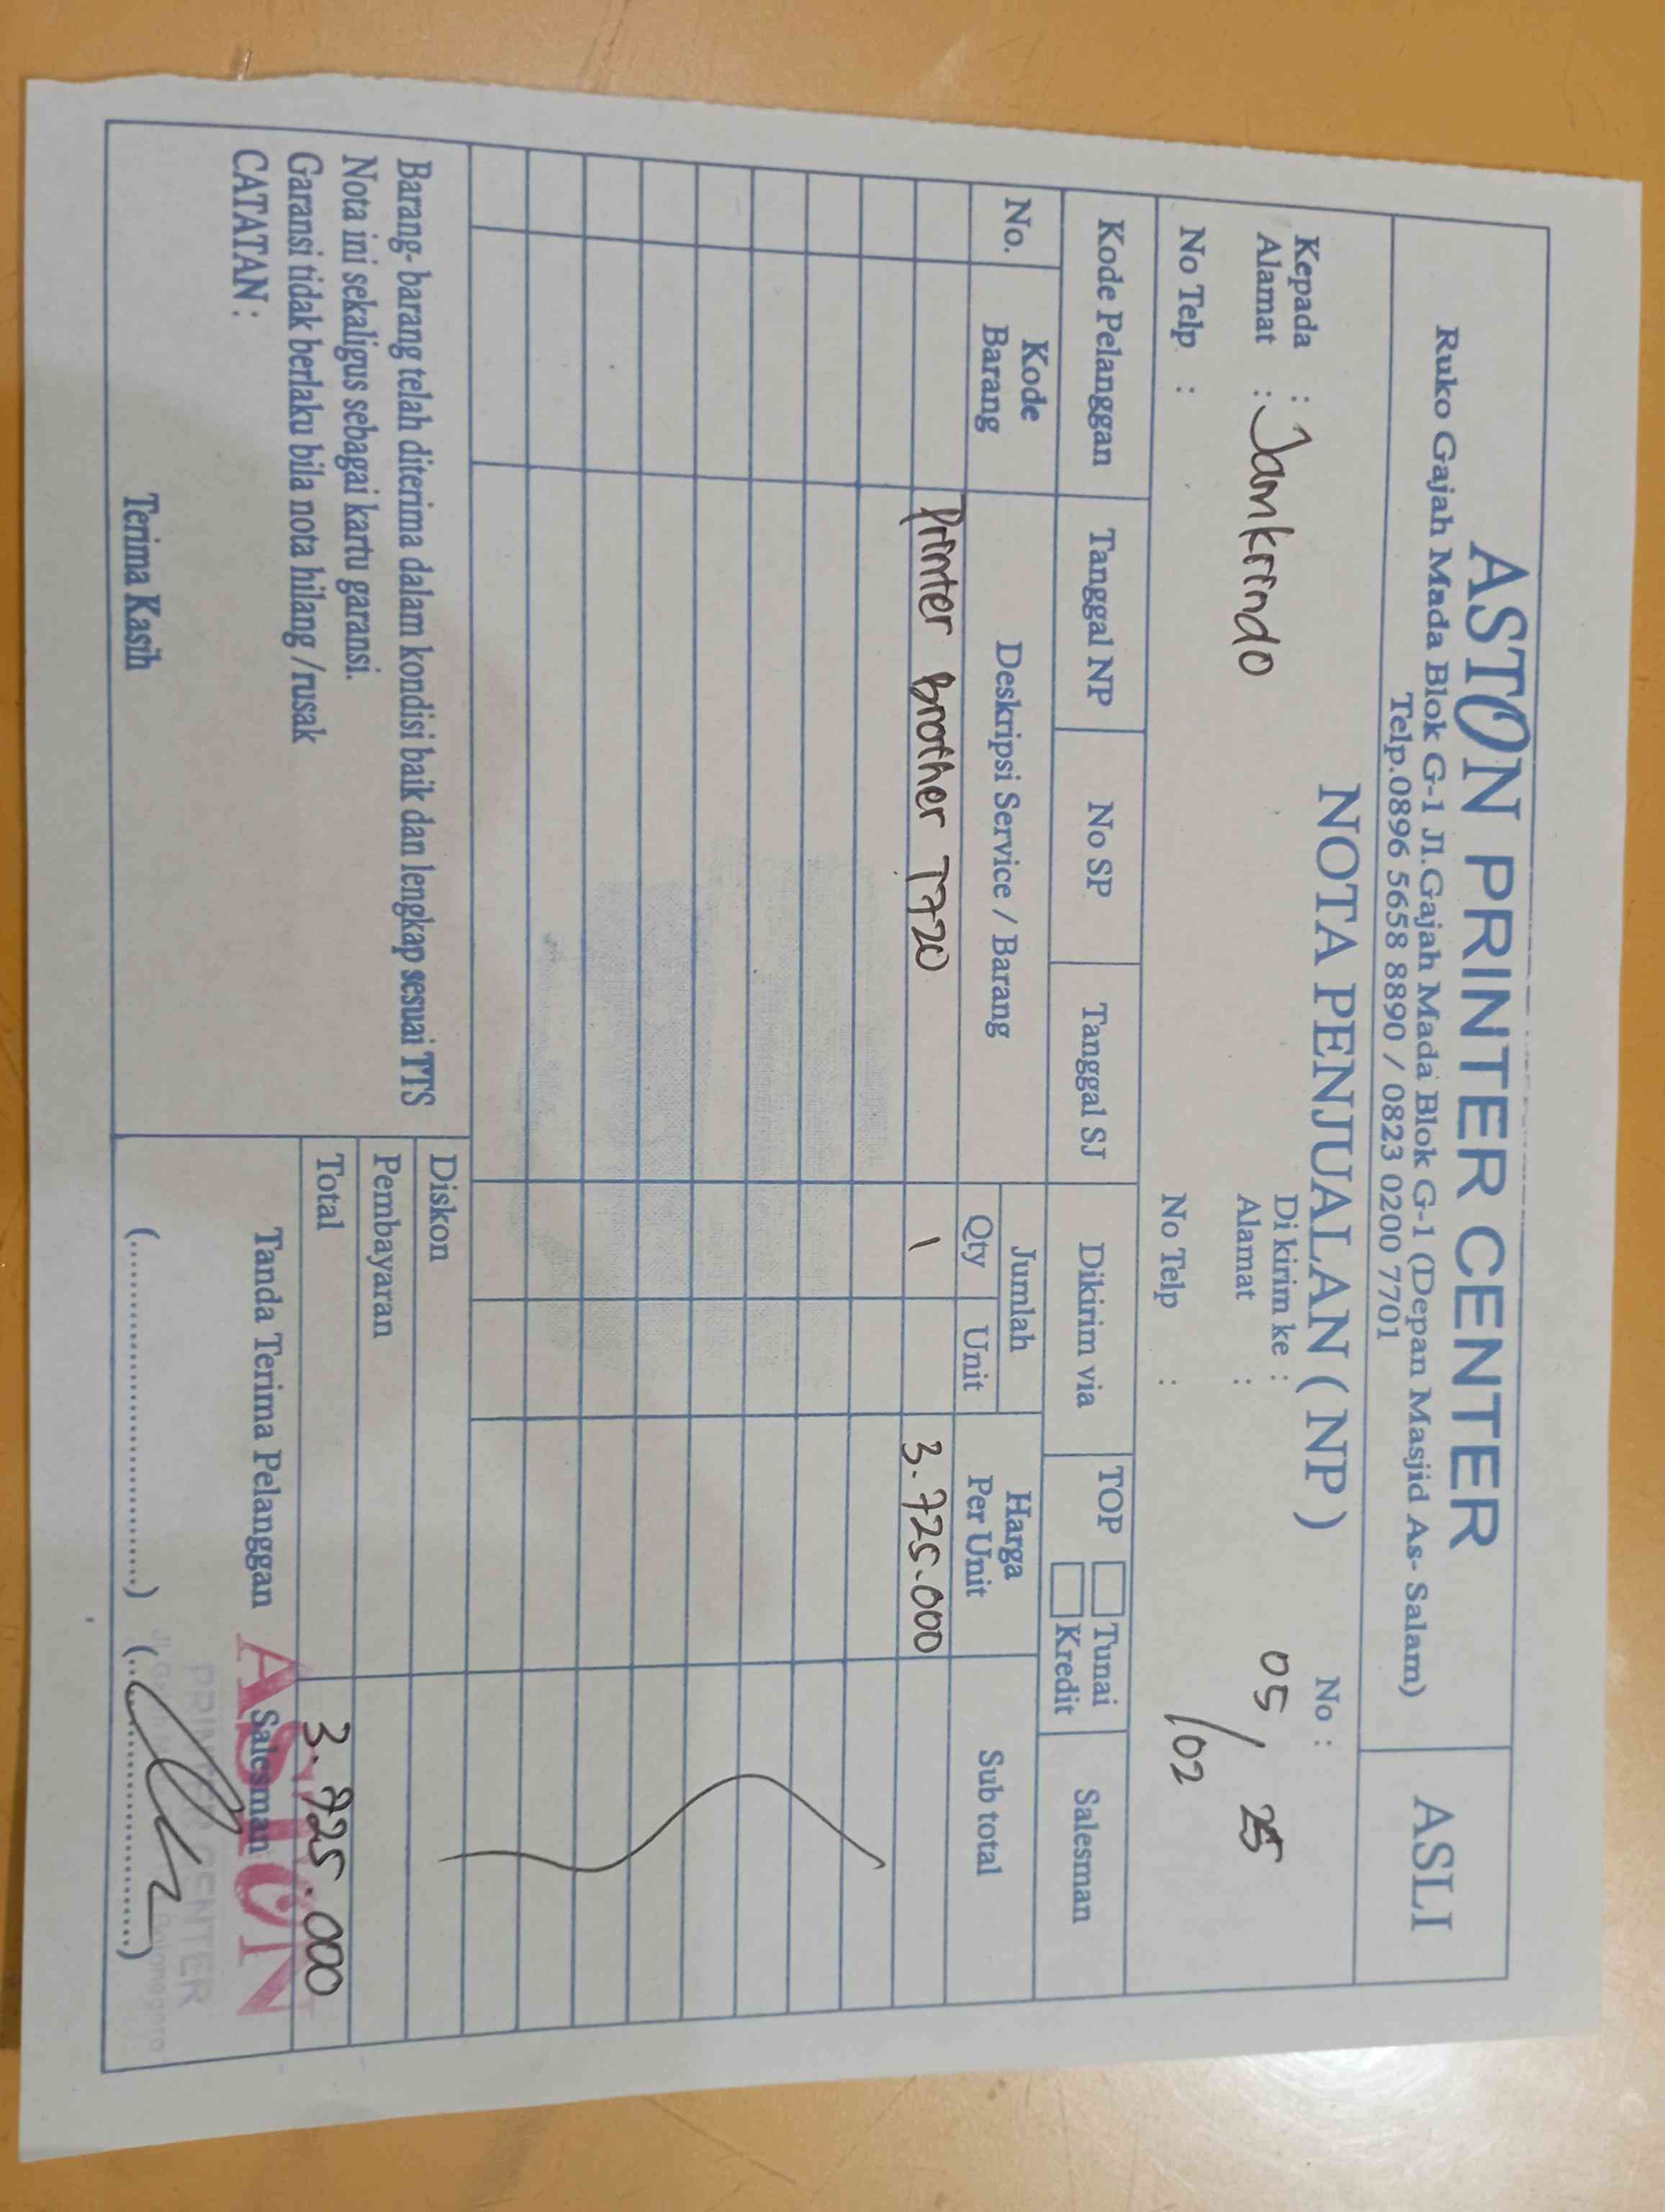 ASTON PRINTER CENTER
ASLI
Ruko Gajah Mada Blok G-1 Jl.Gajah Mada Blok G-1 (Depan Masjid As- Salam)
Telp.0896 5658 8890 / 0823 0200 7701
NOTA PENJUALAN ( NP )
No :
Kepada :
Alamat : Jamkrindo
Di kirim ke :
Alamat :
05/02 25
No Telp :
No Telp :
Kode Pelanggan Tanggal NP No SP Tanggal SJ Dikirim via TOP Tunai Kredit Salesman
No. Kode Barang Deskripsi Service / Barang Jumlah Qty Unit Harga Per Unit Sub total
Printer Brother T720 1 3.725.000
Barang- barang telah diterima dalam kondisi baik dan lengkap sesuai TTS
Nota ini sekaligus sebagai kartu garansi.
Garansi tidak berlaku bila nota hilang /rusak
CATATAN :
Terima Kasih
Diskon
Pembayaran
Total 3.725.000
Tanda Terima Pelanggan Salesman
ASTON
PRINTER CENTER
(..............................) (..............................)